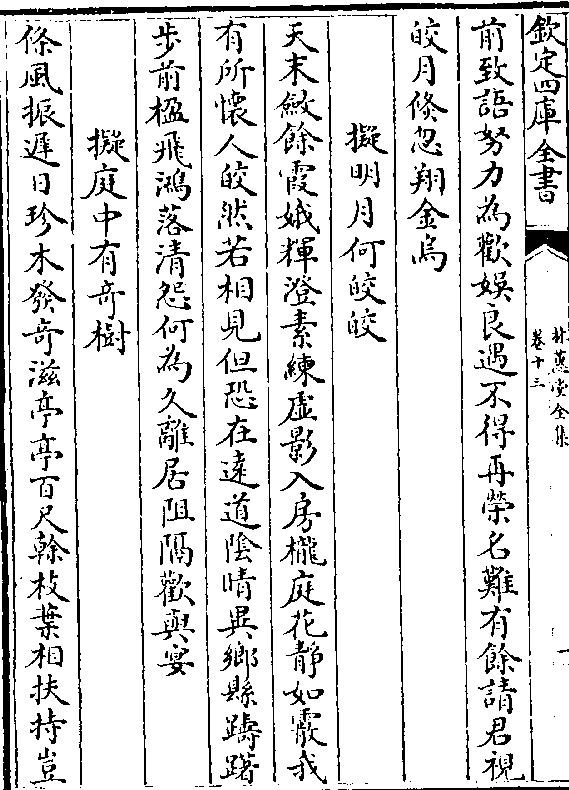 欽定四庫全書
林蕙堂全集
卷十三
前致語努力為歡娛良遇不得再榮名難有餘請君視
皎月倐忽翔金烏
擬明月何皎皎
天末斂餘霞娥輝澄素練虛影入房櫳庭花靜如霰我
有所懷人皎然若相見但恐在遠道陰晴異鄉縣躊躇
步前楹飛鴻落清怨何為久離居阻隔歡與宴
擬庭中有奇樹
條風振遲日珍木發奇滋亭亭百尺榦枝葉相扶持豈